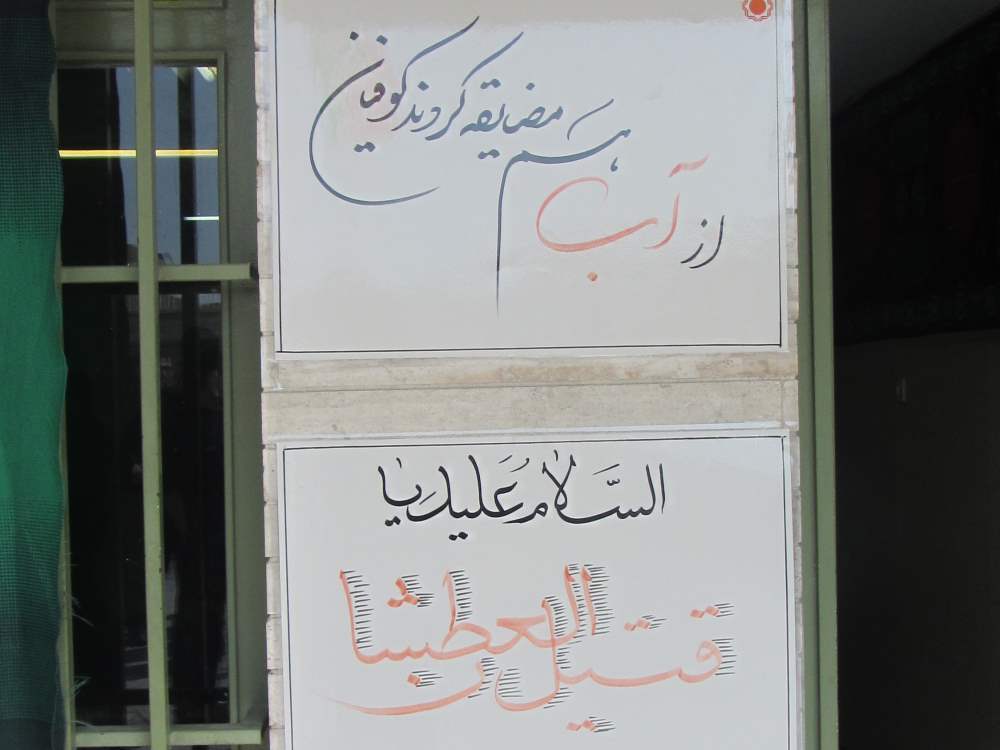 از آب هم مضایقه کردند کوفیان
السَّلامُ عَلیکِ یا
قتیل العطشان